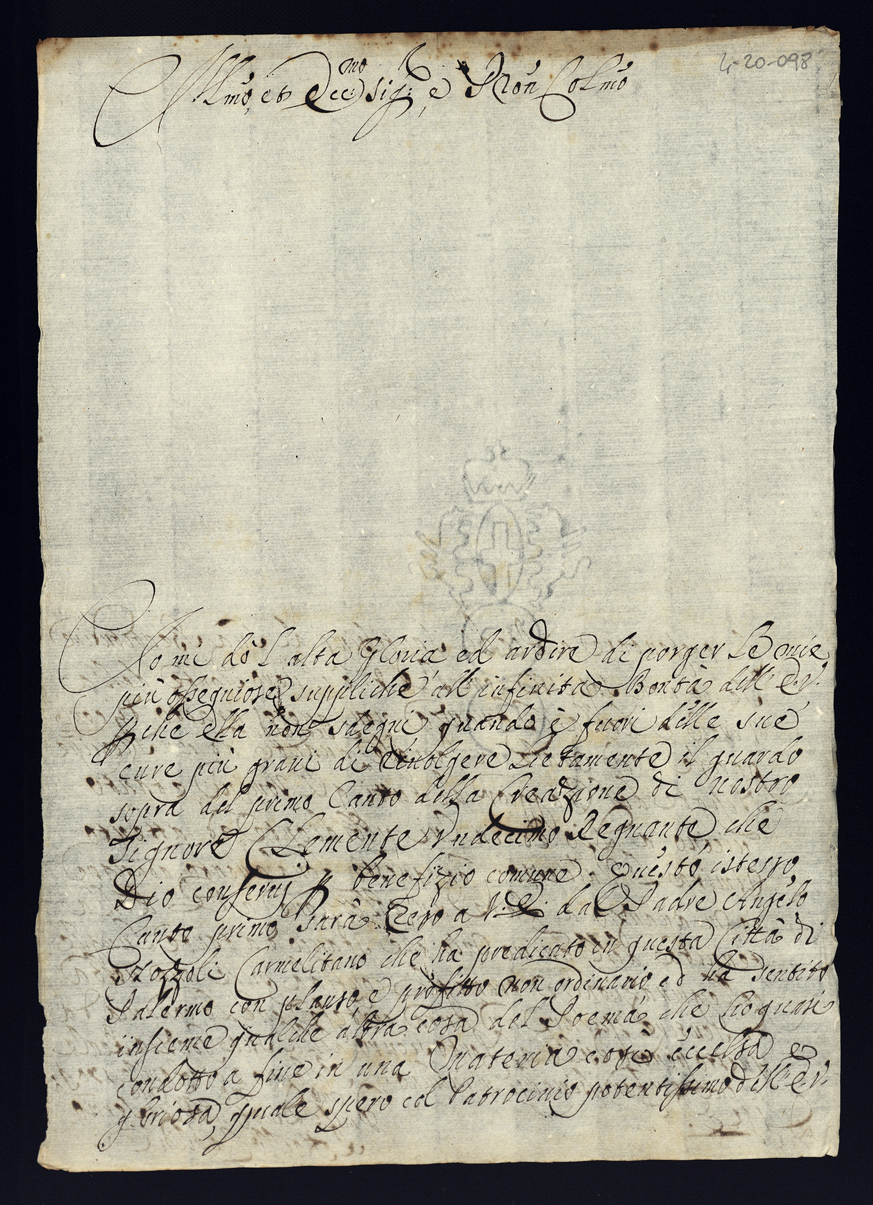 4-20-098
Illmo, et Ecc:mo Sig:r, e Pron Colmo
Io mi dò l'alta Gloria ed ardire di porger le mie
più ossequiose suppliche all'infinita Bontà dell' E.V.
che ella non sdegni quando è fuori delle sue
cure più gravi di rivolgere lietamente il guardo
sopra del primo Canto della Creazione di nostro
Signore Clemente Undecimo Regnante che
Dio conservj p benefizio comune. Questo istesso
Canto primo sarà reso a V.E. dal Padre Angelo
Carmelitano che ha predicato in questa Città di
Palermo con plauso, e profitto non ordinario ed ha sentito
insieme qualche altra cosa del Poema che ho quasi
condotto a fine in una Materia così eccelsa e
gloriosa, quale spero col Patrocinio potentissimo dell' E.V.